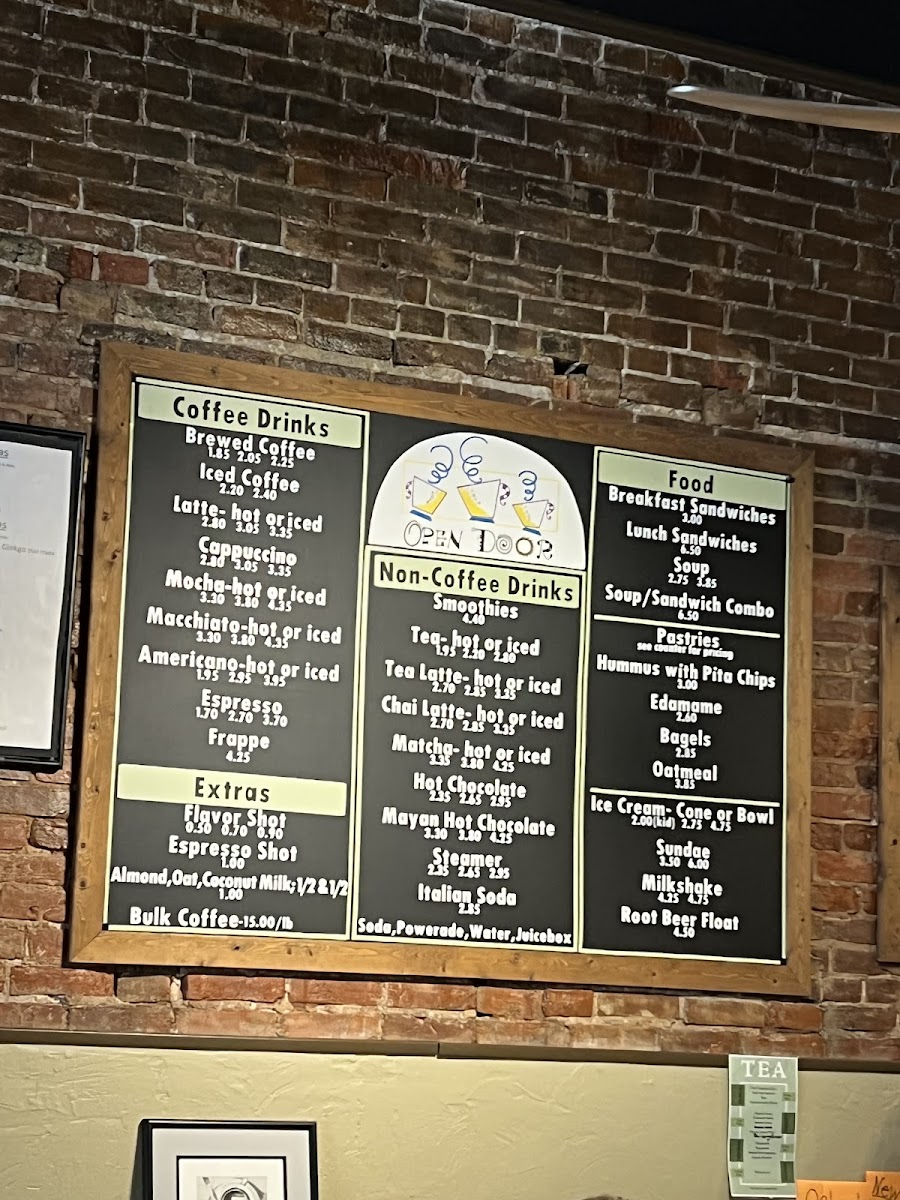 Coffee Drinks
Brewed Coffee
1.85 2.05 2.25
Iced Coffee
2.20 2.40
Latte- hot or iced
2.80 3.05 3.35
Cappuccino
2.80 3.05 3.35
Mocha-hot or iced
3.30 3.80 4.35
Macchiato-hot or iced
3.30 3.80 4.35
Americano-hot or iced
1.95 2.95 3.95
Espresso
1.70 2.70 3.70
Frappe
4.25
Extras
Flavor Shot
0.50 0.70 0.90
Espresso Shot
1.00
Almond,Oat,Coconut Milk;1/2&1/2
1.00
Bulk Coffee-15.00/lb
OPEN DOOR
Non-Coffee Drinks
Smoothies
4.40
Tea- hot or iced
1.95 2.80
Tea Latte- hot or iced
2.70 2.85 3.35
Chai Latte- hot or iced
2.70 2.85 3.35
Matcha- hot or iced
3.35 3.80 4.25
Hot Chocolate
2.35 2.65 2.95
Mayan Hot Chocolate
3.30 3.80 4.25
Steamer
2.35 2.65 2.95
Italian Soda
2.85
Soda,Powerade,Water,Juicebox
Food
Breakfast Sandwiches
3.00
Lunch Sandwiches
6.50
Soup
2.75 3.85
Soup/Sandwich Combo
6.50
Pastries
see counter for pricing
Hummus with Pita Chips
3.00
Edamame
2.60
Bagels
2.35
Oatmeal
3.85
Ice Cream- Cone or Bowl
2.00(kid) 2.75 4.75
Sundae
3.50 6.00
Milkshake
4.25 4.75
Root Beer Float
4.50
TEA
New